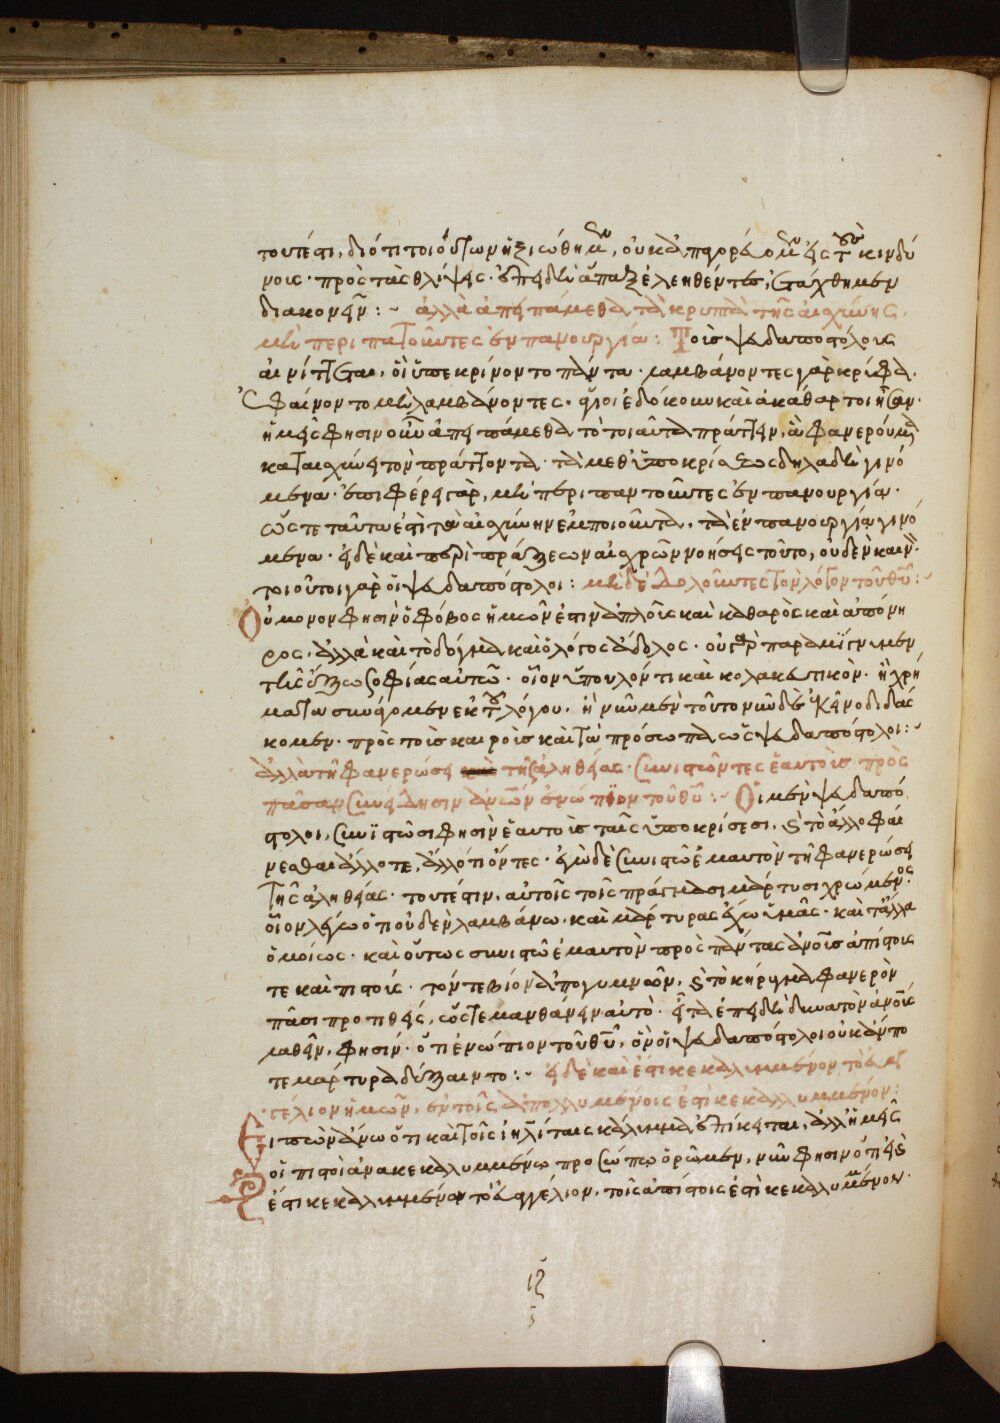 τουτέστι, διότι τοιούτων ἠξιώθημεν, οὐκ ἀπαγορεύομεν ἐς τοὺς κινδύ
νοις· πρὸς τὰς θλίψεις· ἐπειδὴ ἅπαξ ἐλεηθέντες, ἐτάχθημεν
διακονεῖν :- ἀλλὰ ἀπειπάμεθα τὰ κρυπτὰ τῆς αἰσχύνης,
μὴ περιπατοῦντες ἐν πανουργία : Τοῖς ψευδαποστόλοις
αἰνίττεται, οἳ ὑπεκρίνοντο πάντα· λαμβάνοντες γὰρ κρύφα,
ἐφαίνοντο μὴ λαμβάνοντες· ἅγιοι ἐδόκουν καὶ ἀκάθαρτοι ἦσαν·
ἡμεῖς φησιν οὖν ἀπειπάμεθα τὸ τοιαῦτα πράττειν, ἃ φανερούμενα
καταισχύνει τὸν πράττοντα· τὰ μεθ' ὑποκρίσεως δηλαδὴ γινό
μενα· ἐπιφέρει γὰρ, μὴ περιπατοῦντες ἐν πανουργία·
ὥστε ταῦτα ἐστὶ τὰ αἰσχύνην ἐμποιοῦντα, τὰ ἐν πανουργία γινό
μενα· εἰ δὲ καὶ περὶ πράξεων αἰσχρῶν νοήσεις τοῦτο, οὐδὲν καινόν·
τοιοῦτοι γὰρ οἱ ψευδαπόστολοι : μὴ δὲ δολοῦντες τὸν λόγον τοῦ θυ :-
Οὐ μόνον φησὶν ὁ βίος ἡμῶν ἐστιν ἁπλοῦς καὶ καθαρὸς καὶ ἀπόνη
ρος, ἀλλὰ καὶ τὸ δόγμα καὶ ὁ λόγος ἄδολος· οὐ γὰρ παραμίγνυμεν
τῆς ἔξω σοφίας αὐτῶ· οἷον ὕπουλόν τι καὶ κολακευτικόν· ἢ χρή
ματα συνάγομεν ἐκ τοῦ λόγου· ἢ νῦν μὲν τοῦτο νῦν δὲ ἐκεῖνο διδάσ
κομεν· πρὸς τοῖς καιροῖς καὶ τὰ πρόσωπα ὡς ψευδαπόστολοι :-
ἀλλὰ τῆ φανερώσει τῆς ἀληθείας· συνιστῶντες ἑαυτοὺς πρὸς
πᾶσαν συνείδησιν ἀνων ἐνώπιον τοῦ θυ :- Οἱ μὲν ψευδαπό
στολοι, συνιστῶσι φησὶν ἑαυτοὺς ταῖς ὑποκρίσεσι, καὶ τὸ ἄλλο φαί
νεσθαι ἄλλοτε, ἄλλό τι ὄντες· ἐγὼ δὲ συνιστῶ ἐμαυτὸν τῆ φανερώσει
τῆς ἀληθείας· τουτέστιν, αὐτοῖς τοῖς πράγμασι μάρτυσι χρώμενος·
οἷον λέγω ὅτι οὐδὲν λαμβάνω· καὶ μάρτυρας ἔχω ὑμᾶς· καὶ τἄλλα
ὁμοίως· καὶ οὕτως συνιστῶ ἐμαυτὸν πρὸς πάντας ἀνους ἀπίστοις
τε καὶ πιστοῖς· τόν τε βίον ἀπογυμνῶν, καὶ τὸ κήρυγμα φανερὸν
πᾶσι προτιθεὶς, ὥστε μανθάνειν αὐτό· εἶτα ἐπειδὴ δυνατὸν ἀνοις
λαθεῖν, φησίν· ὅτι ἐνώπιον τοῦ θυ, ὃν οἱ ψευδαπόστολοι οὐκ ἄν πο
τε μάρτυρα δείξαιντο :- εἰ δὲ καὶ ἐστι κεκαλυμμένον τὸ εὐαγ
γέλιον ἡμῶν, ἐν τοῖς ἀπολλυμένοις ἐστὶ κεκαλυμμένον :
Εἰπὼν ἄνω ὅτι καὶ τοῖς ἰηλίταις κάλυμμα ἐπίκειται, ἀλλ' ἡμεῖς
οἱ πιστοὶ ἀνακεκαλυμμένω προσώπω ὁρῶμεν, νῦν φησιν ὅτι εἰ καὶ
ἐστι κεκαλυμμένον τὸ εὐαγγέλιον, τοῖς ἀπίστοις ἐστὶ κεκαλυμμένον·
ιζ